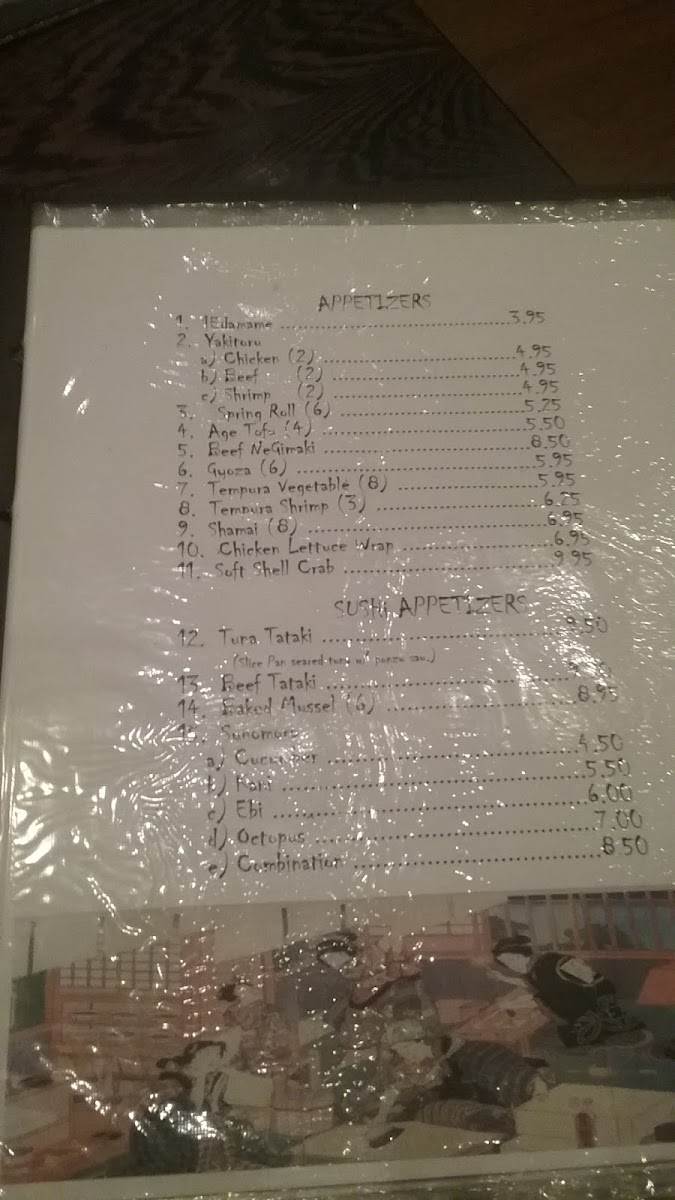 APPETIZERS
1. Edamame ........ 3.95
2. Yakitoru
a) Chicken (2) ........ 4.95
b) Beef (2) ........ 4.95
c) Shrimp (2) ........ 4.95
3. Spring Roll (6) ........ 5.25
4. Age Tofu (4) ........ 5.50
5. Beef NeGimaki ........ 8.50
6. Gyoza (6) ........ 5.95
7. Tempura Vegetable (8) ........ 5.95
8. Tempura Shrimp (3) ........ 6.25
9. Shamai (8) ........ 6.95
10. Chicken Lettuce Wrap ........ 6.95
11. Soft Shell Crab ........ 9.95
SUSHI APPETIZERS
12. Tuna Tataki ........ 9.50
(Slice Pan seared tuna w/ ponzu sau.)
13. Beef Tataki ........
14. Baked Mussel (6) ........ 8.95
15. Sunomuro
a) Cucumber ........ 4.50
b) Kani ........ 5.50
c) Ebi ........ 6.00
d) Octopus ........ 7.00
e) Combination ........ 8.50